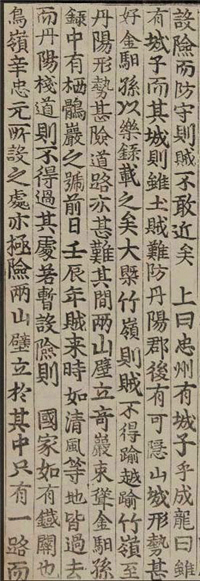 設險而防守則賊不敢近矣　上曰忠州有城子乎成龍曰雖
有城子而其城則雖土賊難防丹陽郡後有可隱山城形勢甚
好金馹孫以樂錄載之矣大槩竹嶺則賊不得踰越踰竹嶺至
丹陽形勢甚險道路亦甚難其間兩山壁立奇巖束聳金馹孫
錄中有栖鶻巖之號前日壬辰年賊來時如淸風等地皆過去
而丹陽棧道則不得過其處若暫設險則　國家如有鐵關也
鳥嶺辛忠元所設之處亦極險兩山壁立於其中只有一路而